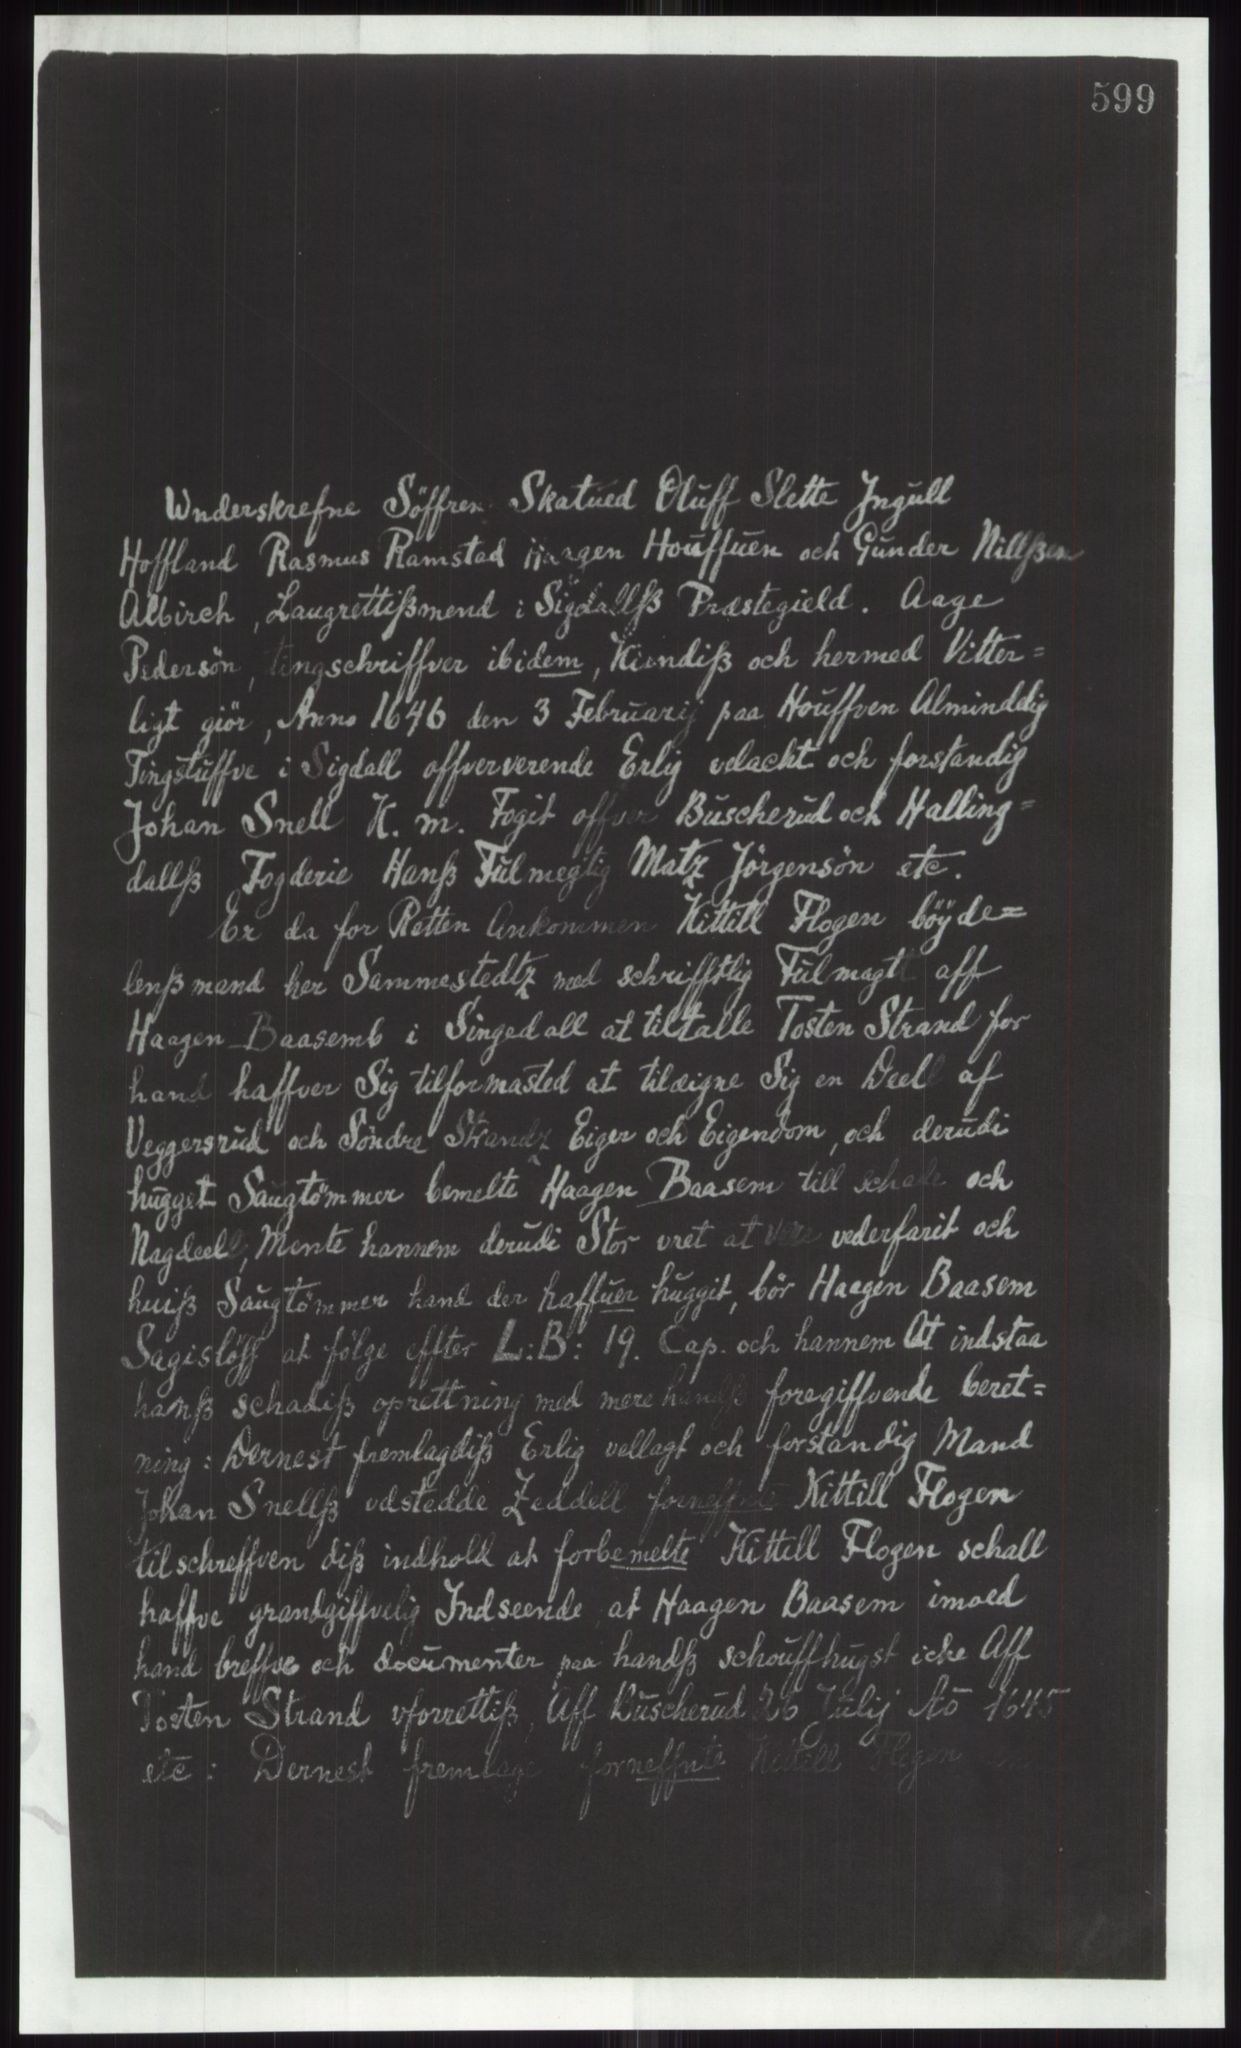 599
Wnderskrefne Söffren Skatued Oluff Slette Jngull
Hoffland Rasmus Ramstad Haagen Houffuen och Gunder Nillßen
Albirch, Laugrettißmend i Sigdallß Præstegield. Aage
Pedersön, tingschriffver ibidem, Kiendiß och hermed Vitter=
ligt giör, Anno 1646 den 3 Februarij paa Houffven Alminddig
Tingstuffve i Sigdall offververende Erlig velacht och forstandig
Johan Snell K. m. Fogit offver Buscherud och Halling=
dallß Fogderie Hanß Fulmegtig Matz Jörgensön etc.
Er da for Retten Ankommen Kittill Flogen böyde=
lenßmand her Sammestedtz med schrifftlig Fulmagt aff
Haagen Baasemb i Singedall at tiltalle Tosten Strand for
hand haffver Sig tilformasted at tileigne Sig en Deel af
Veggersrud och Söndre Strandz Eiger och Eigendom, och derudi
hugget Saugtömmer bemelte Haagen Baasem till schade och
Nagdeell, Mente hannem derudi Stor vret at vere vederfarit och
huiß Saugtömmer hand der haffuer huggit, bör Haagen Baasem
Sagislöff at fölge effter L:B: 19. Cap. och hannem At indstaa
hanß schadiß oprettning med mere handß foregiffvende beret=
ning: Dernest fremlagdiß Erlig vellagt och forstandig Mand
Johan Snellß vdstedde Zeddell forneffnte Kittill Flogen
tilschreffven diß indhold at forbemelte Kittill Flogen schall
haffve grandgiffvelig Indseende at Haagen Baasem imoed
hand breffve och documenter paa handß schouffhugst icke Aff
Tosten Strand vforrettiß, Aff Buscherud 26 Julij Ao 1645
etc: Dernest fremlage forneffnte Kittill Flogen